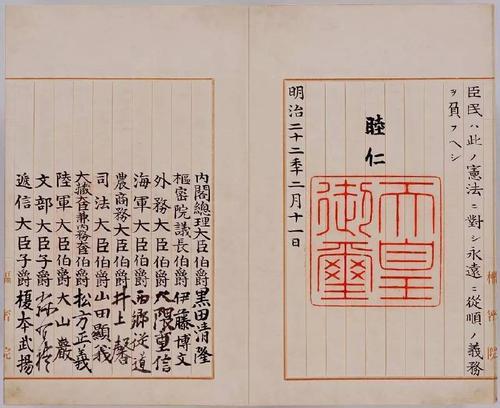 臣民ハ此ノ憲法ニ對シ永遠ニ從順ノ義務
ヲ負フヘシ
睦仁
天皇
御璽
明治二十二年二月十一日
内閣總理大臣伯爵黒田清隆
樞密院議長伯爵伊藤博文
外務大臣伯爵大隈重信
海軍大臣伯爵西郷従道
農商務大臣伯爵井上馨
司法大臣伯爵山田顯義
大藏大臣兼内務大臣伯爵松方正義
陸軍大臣伯爵大山巖
文部大臣子爵森有禮
遞信大臣子爵榎本武揚
樞密院
樞密院